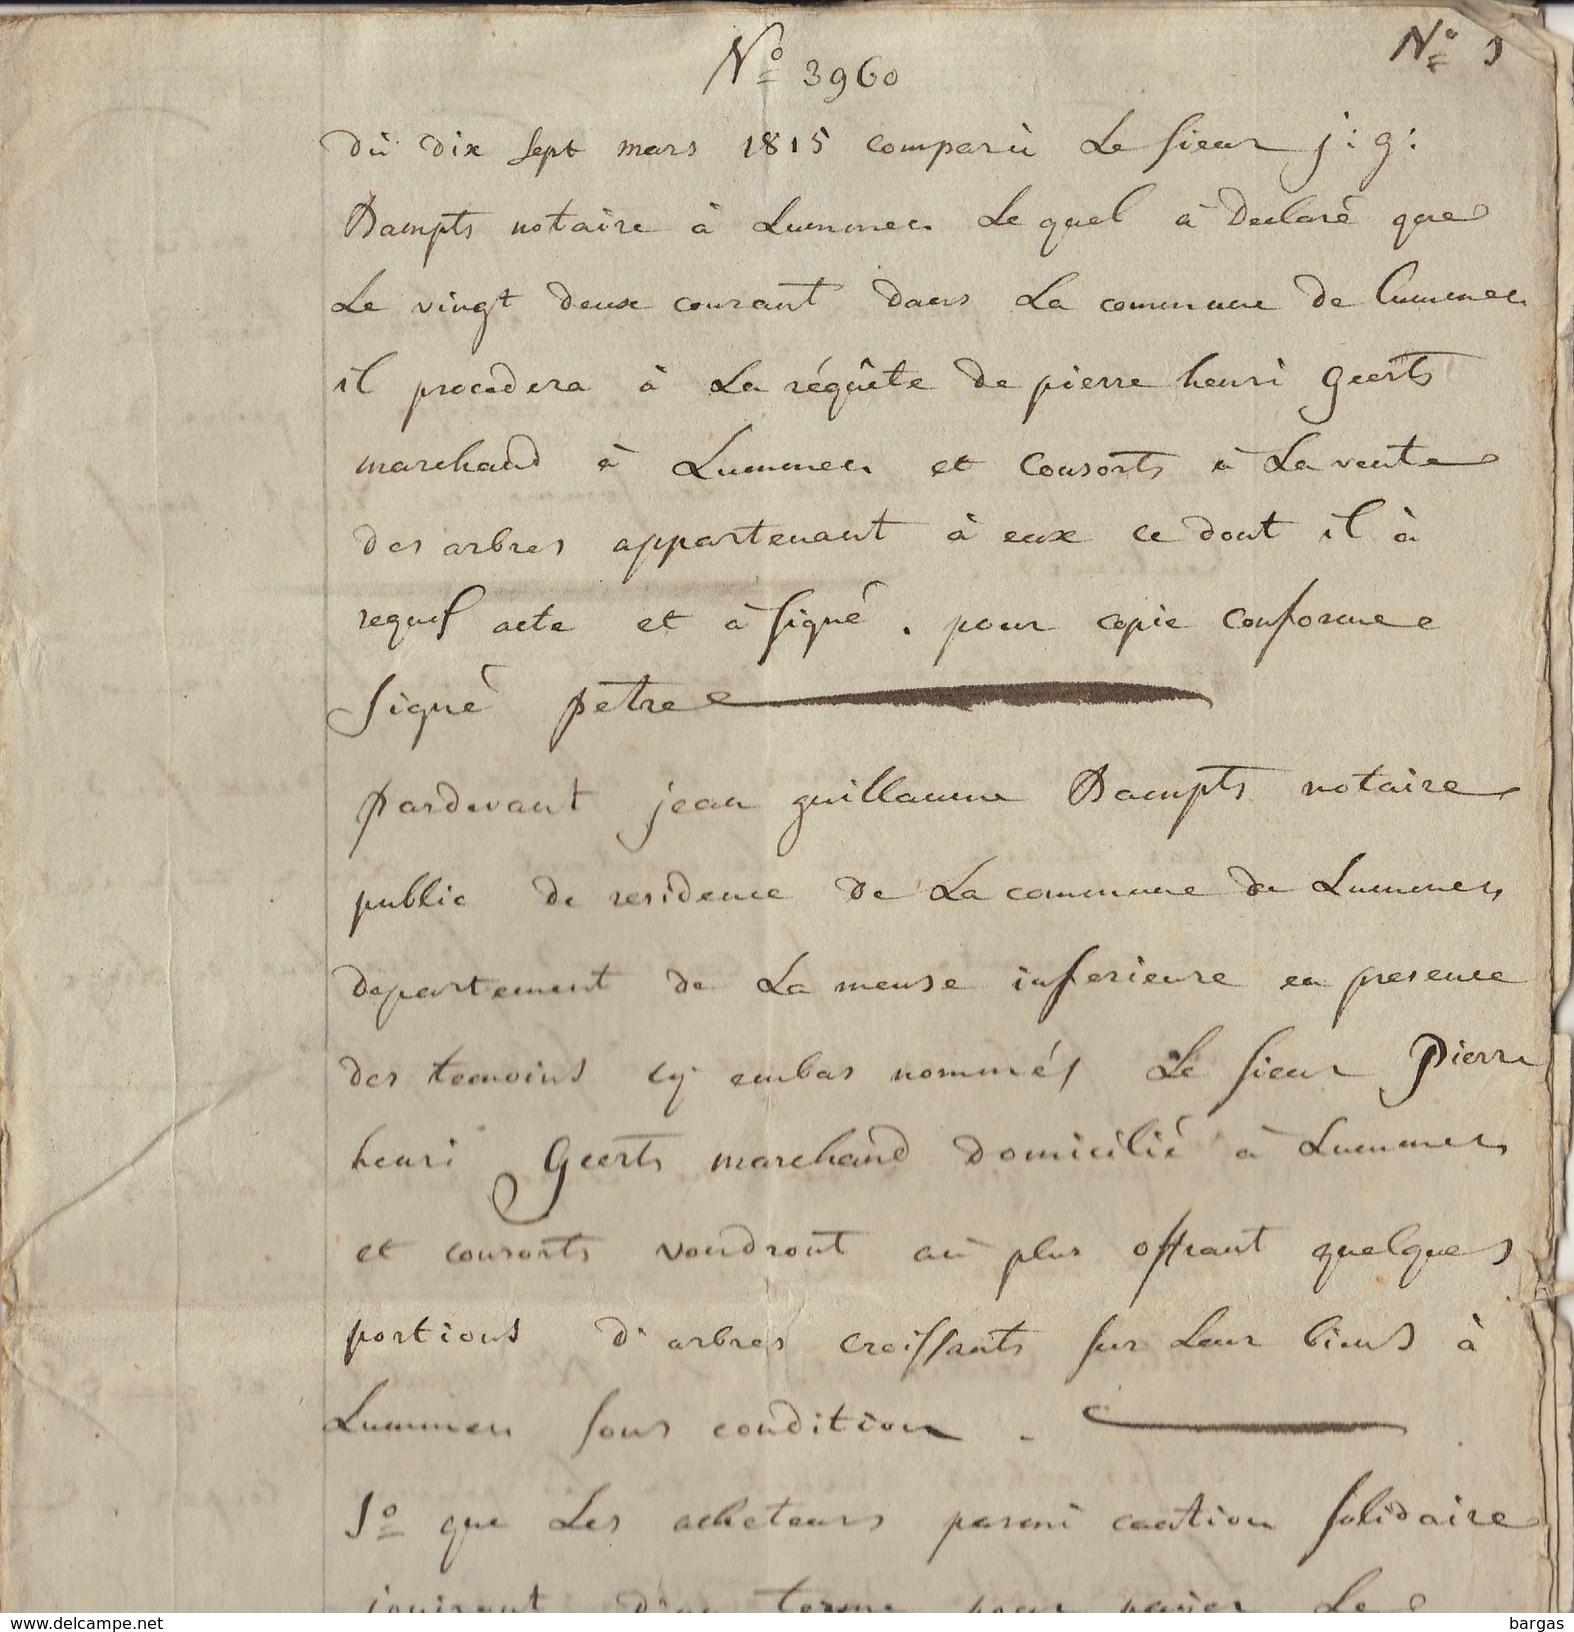 N.º 3960
N.º 1
dù dix sept mars 1815 comparù Le sieur j: g:
Dampts notaire à Lummen Le quel à declaré que
Le vingt deux courant dans La commune de lummen
il procedera à La réquête de pierre henri Geerts
marchand à Lummen et Consorts à La vente
des arbres appartenant à eux ce dont il à
requis acte et à signé. pour copie conforme
signé petre
pardevant jean guillaume Dampts notaire
public de residence de La commune de Lummen
departement de La meuse inferieure en presence
des temoins cy embas nommés Le sieur Pierre
henri Geerts marchand domicilié à Lummen
et consorts vendront au plus offrant quelques
portions d'arbres croissants sur Leur biens à
Lummen sous condition.
1.º que Les acheteurs parmi caution solidaire
jouiront d'un terme pour paier Le
www.delcampe.net
bargas